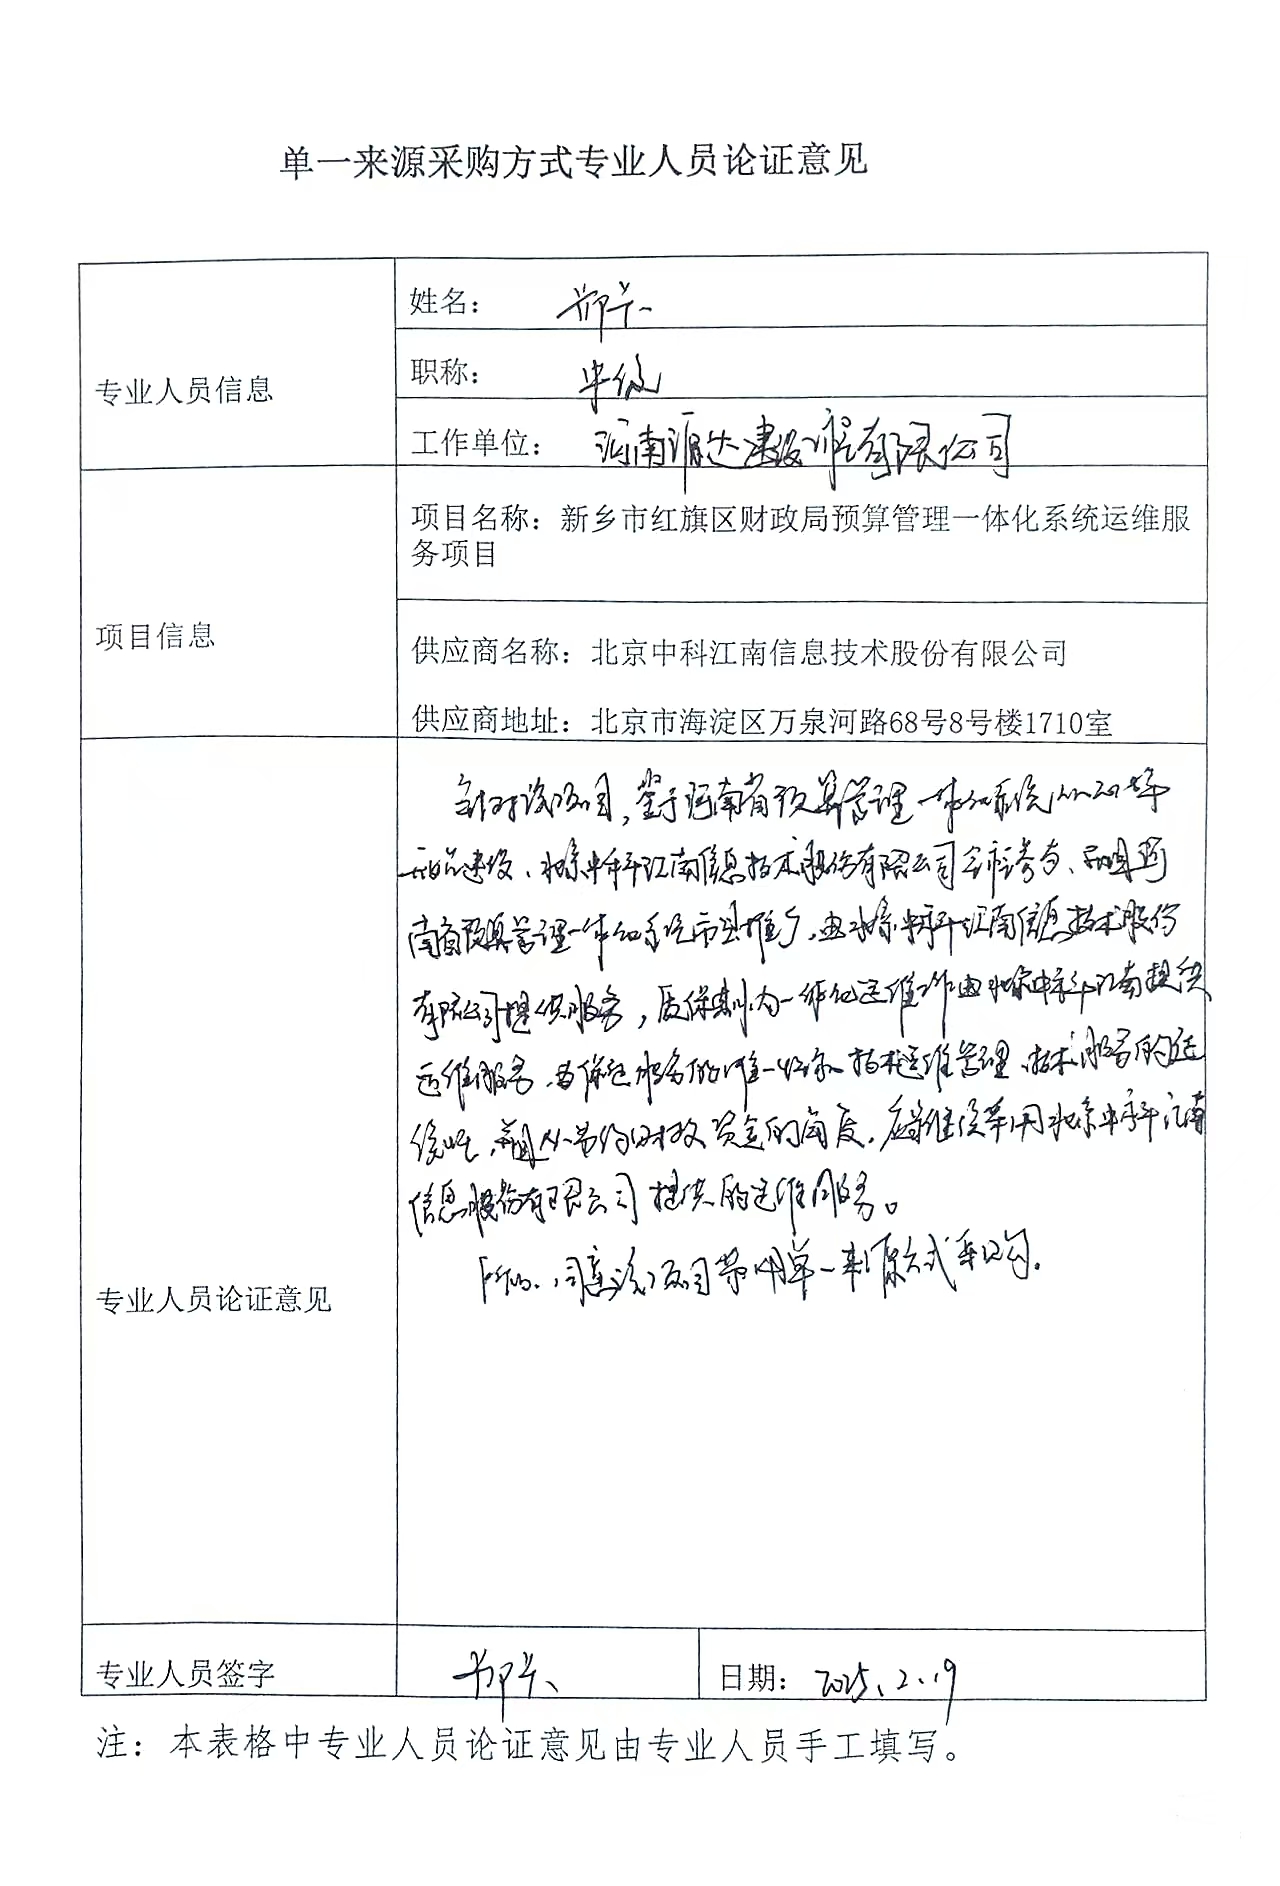 单一来源采购方式专业人员论证意见
专业人员信息
姓名：
职称：中级
工作单位：河南源达建设工程有限公司
项目信息
项目名称：新乡市红旗区财政局预算管理一体化系统运维服
务项目
供应商名称：北京中科江南信息技术股份有限公司
供应商地址：北京市海淀区万泉河路68号8号楼1710室
专业人员论证意见
针对该项目，鉴于河南省预算管理一体化系统从20年
建设、北京中科江南信息技术股份有限公司全市参与、
南省预算管理一体化系统市县推广，由北京中科江南信息技术股份
有限公司提供服务，质保期为一体化运维工作由北京中科江南提供
运维服务，为保证服务的唯一性、技术运维管理、技术服务的延
续性，并且从节约财政资金的角度，应当继续采用北京中科江南
信息股份有限公司提供的运维服务。
所以，同意该项目采用单一来源方式采购。
专业人员签字
日期：2025.2.19
注：本表格中专业人员论证意见由专业人员手工填写。